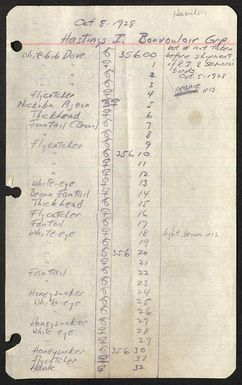 Oct 8 - 1928
Hamlin
Hastings I. Bonvouloir Grp.
White bib Dove 35600
wt # not taken
before shipment
" 1
" 2
birds
Oct. 5 - 1928
" 3
Flycatcher 4
orange iris
Nicobar Pigeon 5
Thickhead 6
Fantail (Brown) 7
" 8
Flycatcher 9
" 256 10
" 11
" 12
White-eye 13
Brown Fantail 14
Thickhead 15
Flycatcher 16
Fantail 17
White-eye 18 light brown iris
" 19
" 356 20
" 21
Fantail 22
" 23
Honeysucker 24
White-eye 25
" 26
Honeysucker 27
White-eye 28
" 29
Honeysucker 356 30
Flycatcher 31
Hawk 32